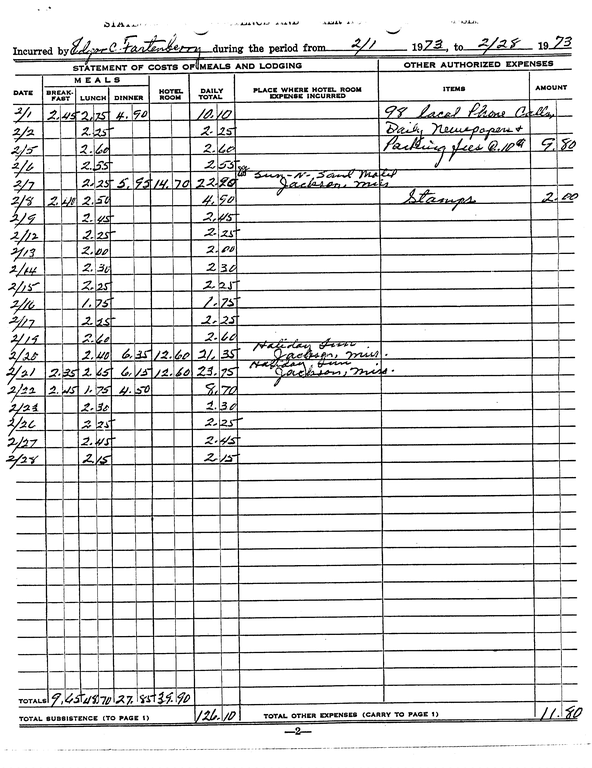 Incurred by Edgar C. Fartenberry during the period from 2/1 1973, to 2/28 1973
STATEMENT OF COSTS OF MEALS AND LODGING OTHER AUTHORIZED EXPENSES
DATE MEALS HOTEL ROOM DAILY TOTAL PLACE WHERE HOTEL ROOM EXPENSE INCURRED ITEMS AMOUNT
BREAKFAST LUNCH DINNER
2/1 2.45 2.75 4.90 10.10 98 Local Phone Calls,
2/2 2.25 2.25 Daily Newspapers &
2/5 2.60 2.60 Parking fees @.10¢ 9.80
2/6 2.55 2.55
2/7 2.25 5.95 14.70 22.90 Sun-N-Sand Motel Jackson, Miss
2/8 2.40 2.50 4.90 Stamps 2.00
2/9 2.45 2.45
2/12 2.25 2.25
2/13 2.00 2.00
2/14 2.30 2.30
2/15 2.25 2.25
2/16 1.75 1.75
2/17 2.25 2.25
2/19 2.60 2.60
2/20 2.40 6.35 12.60 21.35 Holiday Inn Jackson, Miss.
2/21 2.35 2.65 6.15 12.60 23.75 Holiday Inn Jackson, Miss.
2/22 2.45 1.75 4.50 8.70
2/23 2.30 2.30
2/26 2.25 2.25
2/27 2.45 2.45
2/28 2.15 2.15
TOTALS 9.65 48.70 27.85 39.90
TOTAL SUBSISTENCE (TO PAGE 1) 126.10 TOTAL OTHER EXPENSES (CARRY TO PAGE 1) 11.80
—2—